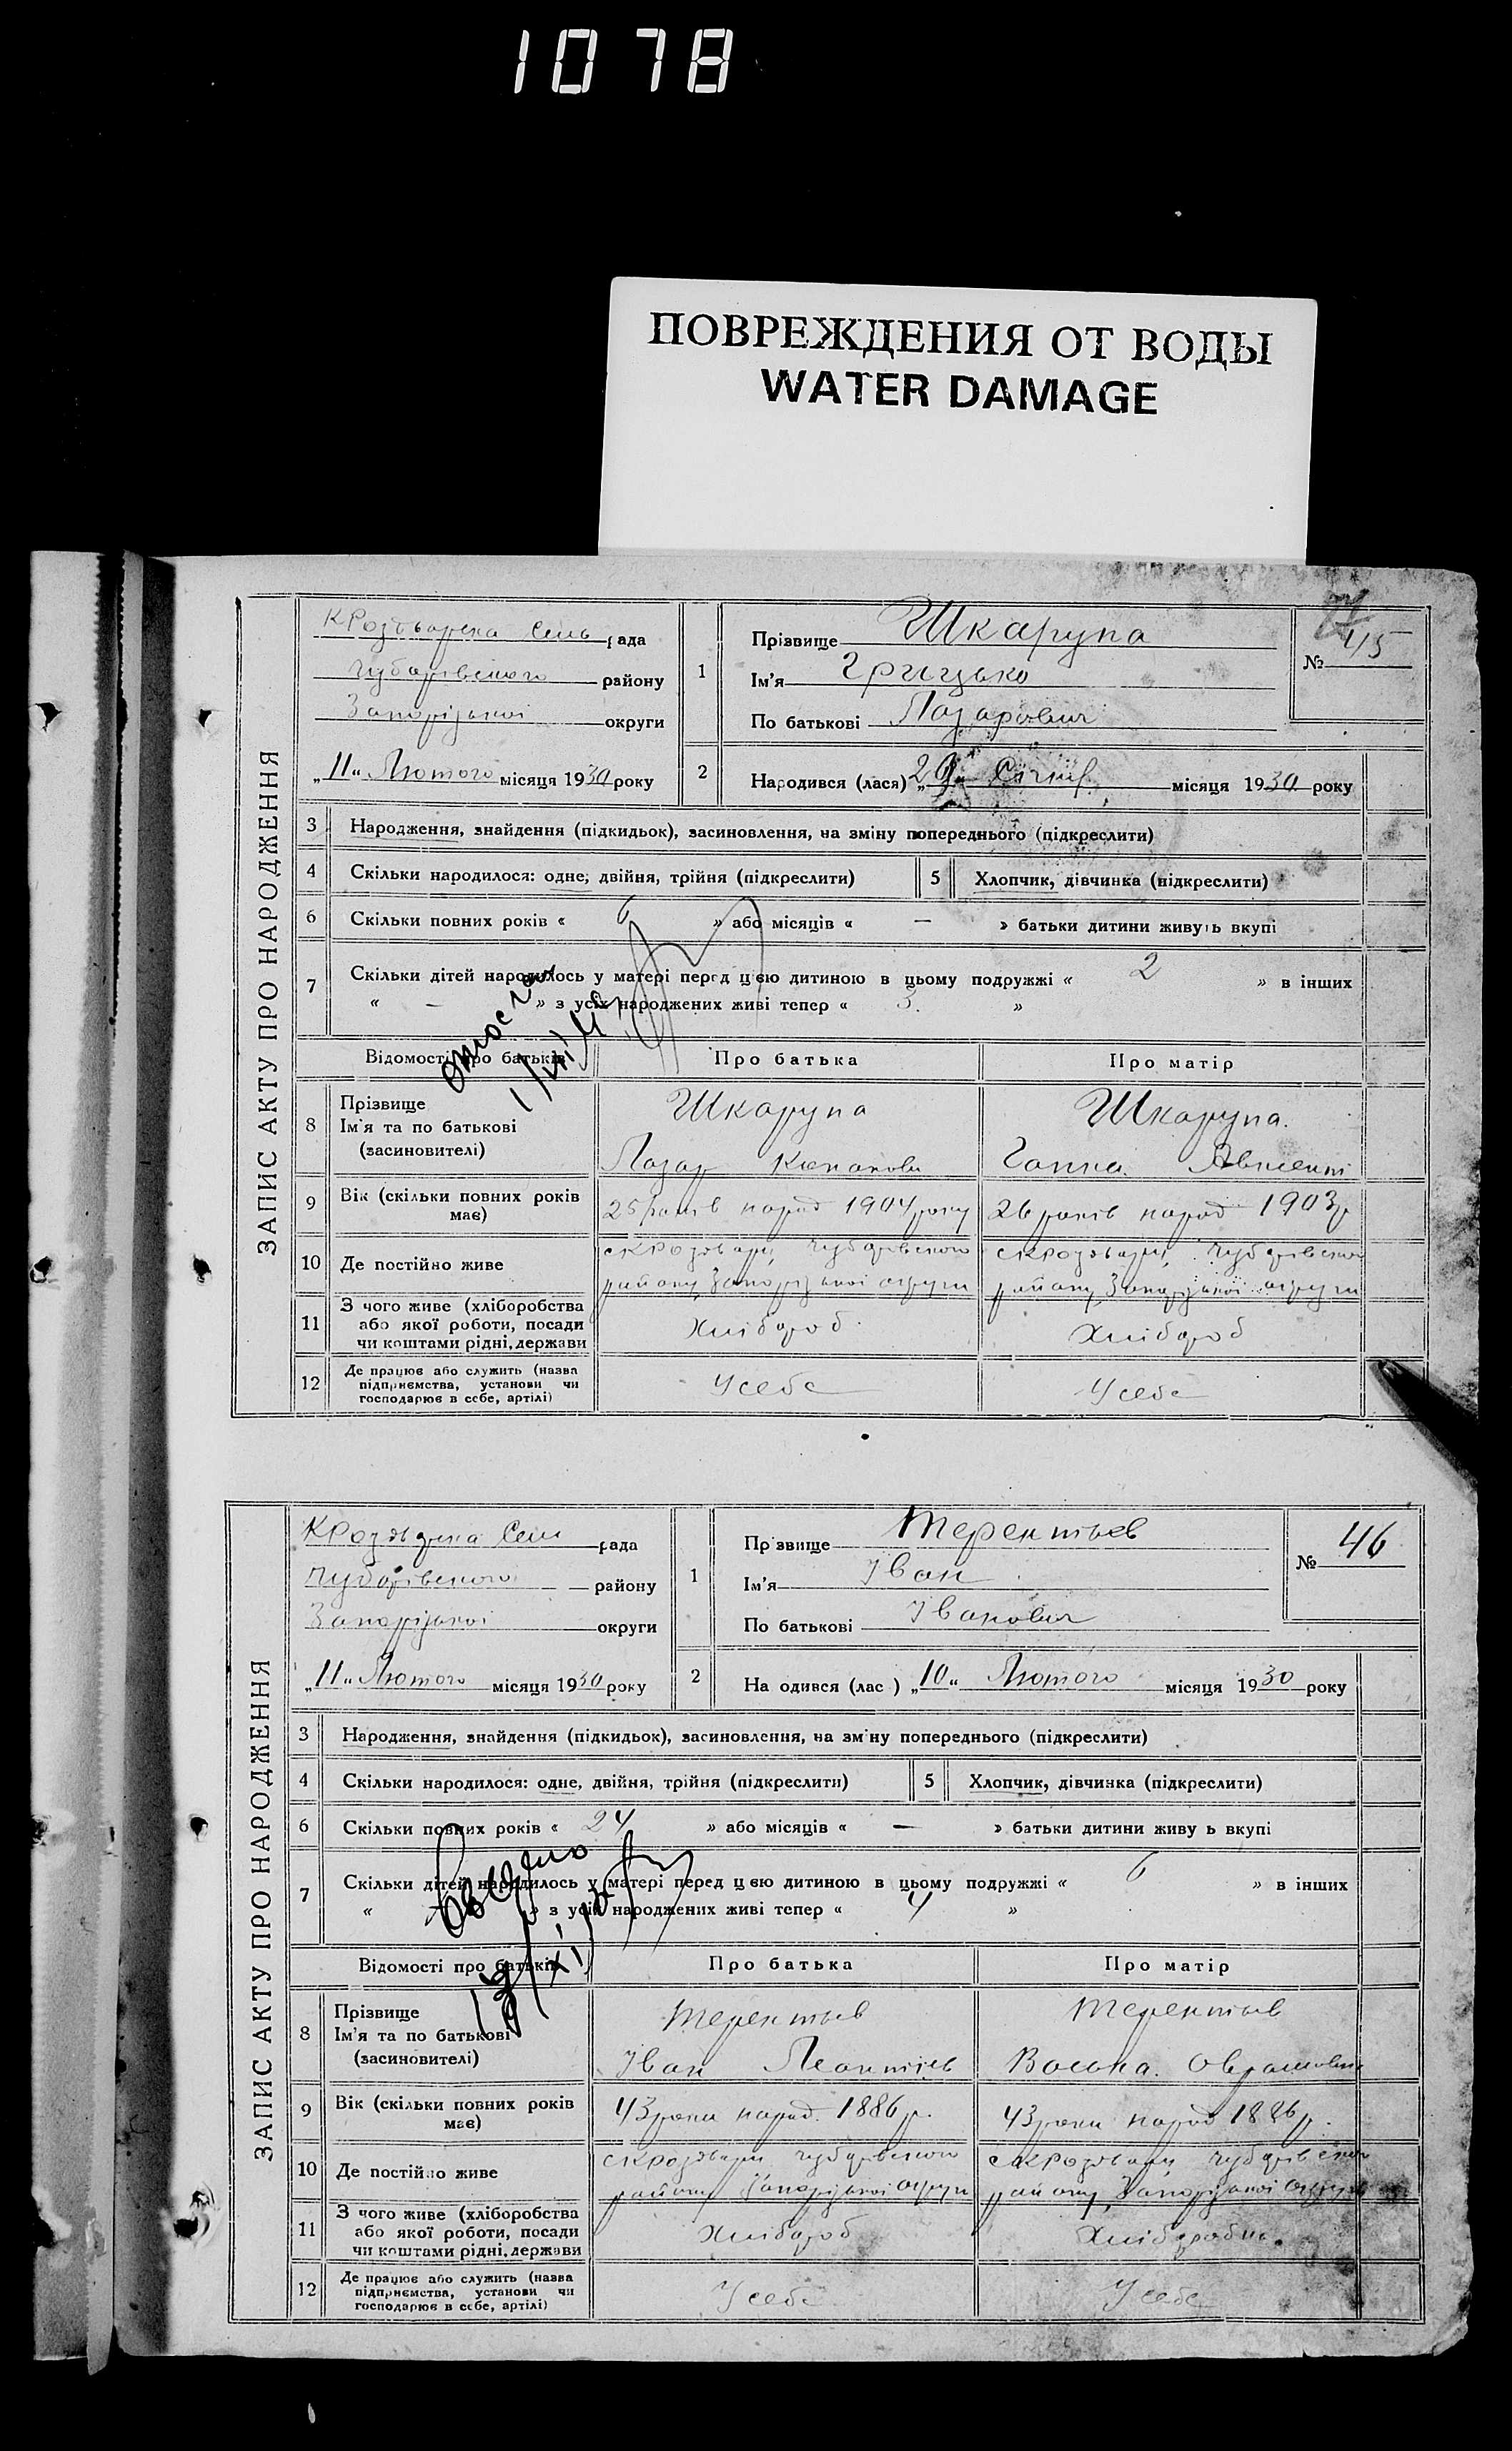 1078
ПОВРЕЖДЕНИЯ ОТ ВОДЫ
WATER DAMAGE
ЗАПИС АКТУ ПРО НАРОДЖЕННЯ
рада
Чубарівського району
Запорізької округи
„11" Лютого місяця 1930 року
1
Прізвище Шкарупа
Ім'я Грицько
По батькові Лазарович
№ 45
2
Народився (лася) „29" Січня місяця 1930 року
3 Народження, знайдення (підкидьок), засиновлення, на зміну попереднього (підкреслити)
4 Скільки народилося: одне, двійня, трійня (підкреслити)
5 Хлопчик, дівчинка (підкреслити)
6 Скільки повних років « 6 » або місяців « — » батьки дитини живуть вкупі
7 Скільки дітей народилось у матері перед цією дитиною в цьому подружжі « 2 » в інших
« — » з усіх народжених живі тепер « 3. »
Відомості про батьків Про батька Про матір
8 Прізвище
Ім'я та по батькові
(засиновителі)
Шкарупа
Лазар
Шкарупа.
Ганна
9 Вік (скільки повних років
має)
25 років народ 1904 року
26 років народ 1903 р
10 Де постійно живе
Чубарівського
району Запорізької округи
Чубарівського
району Запорізької округи
11 З чого живе (хліборобства
або якої роботи, посади
чи коштами рідні, держави
Хлібороб.
Хлібороб
12 Де працює або служить (назва
підприємства, установи чи
господарює в себе, артілі)
У себе
У себе
ЗАПИС АКТУ ПРО НАРОДЖЕННЯ
рада
Чубарівського району
Запорізької округи
„11" Лютого місяця 1930 року
1
Прізвище Терентьєв
Ім'я Іван
По батькові Іванович
№ 46
2
На одився (лас ) „10" Лютого місяця 1930 року
3 Народження, знайдення (підкидьок), засиновлення, на зміну попереднього (підкреслити)
4 Скільки народилося: одне, двійня, трійня (підкреслити)
5 Хлопчик, дівчинка (підкреслити)
6 Скільки повних років « 24 » або місяців « — » батьки дитини живу ь вкупі
7 Скільки дітей народилось у матері перед цією дитиною в цьому подружжі « 6 » в інших
« » з усіх народжених живі тепер « 4 »
Відомості про батьків Про батька Про матір
8 Прізвище
Ім'я та по батькові
(засиновителі)
Терентьєв
Іван
Терентьєв
9 Вік (скільки повних років
має)
43 роки народ. 1886 р.
43 роки народ 1886 р.
10 Де постійно живе
Чубарівського
району Запорізької округи
Чубарівського
району Запорізької округи
11 З чого живе (хліборобства
або якої роботи, посади
чи коштами рідні, держави
Хлібороб
12 Де працює або служить (назва
підприємства, установи чи
господарює в себе, артілі)
У себе
У себе